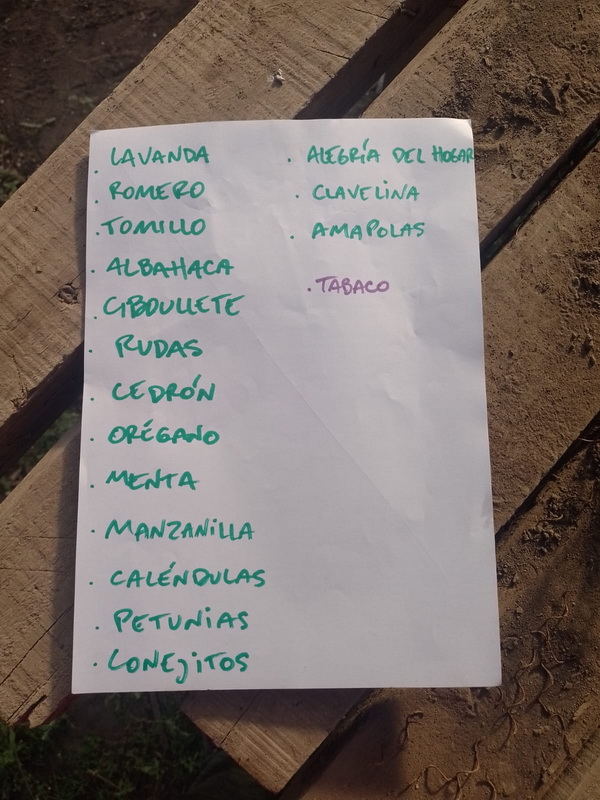 . LAVANDA
. ROMERO
. TOMILLO
. ALBAHACA
. CIBOULLETE
. RUDAS
. CEDRÓN
. ORÉGANO
. MENTA
. MANZANILLA
. CALÉNDULAS
. PETUNIAS
. CONEJITOS
. ALEGRÍA DEL HOGAR
. CLAVELINA
. AMAPOLAS
. TABACO